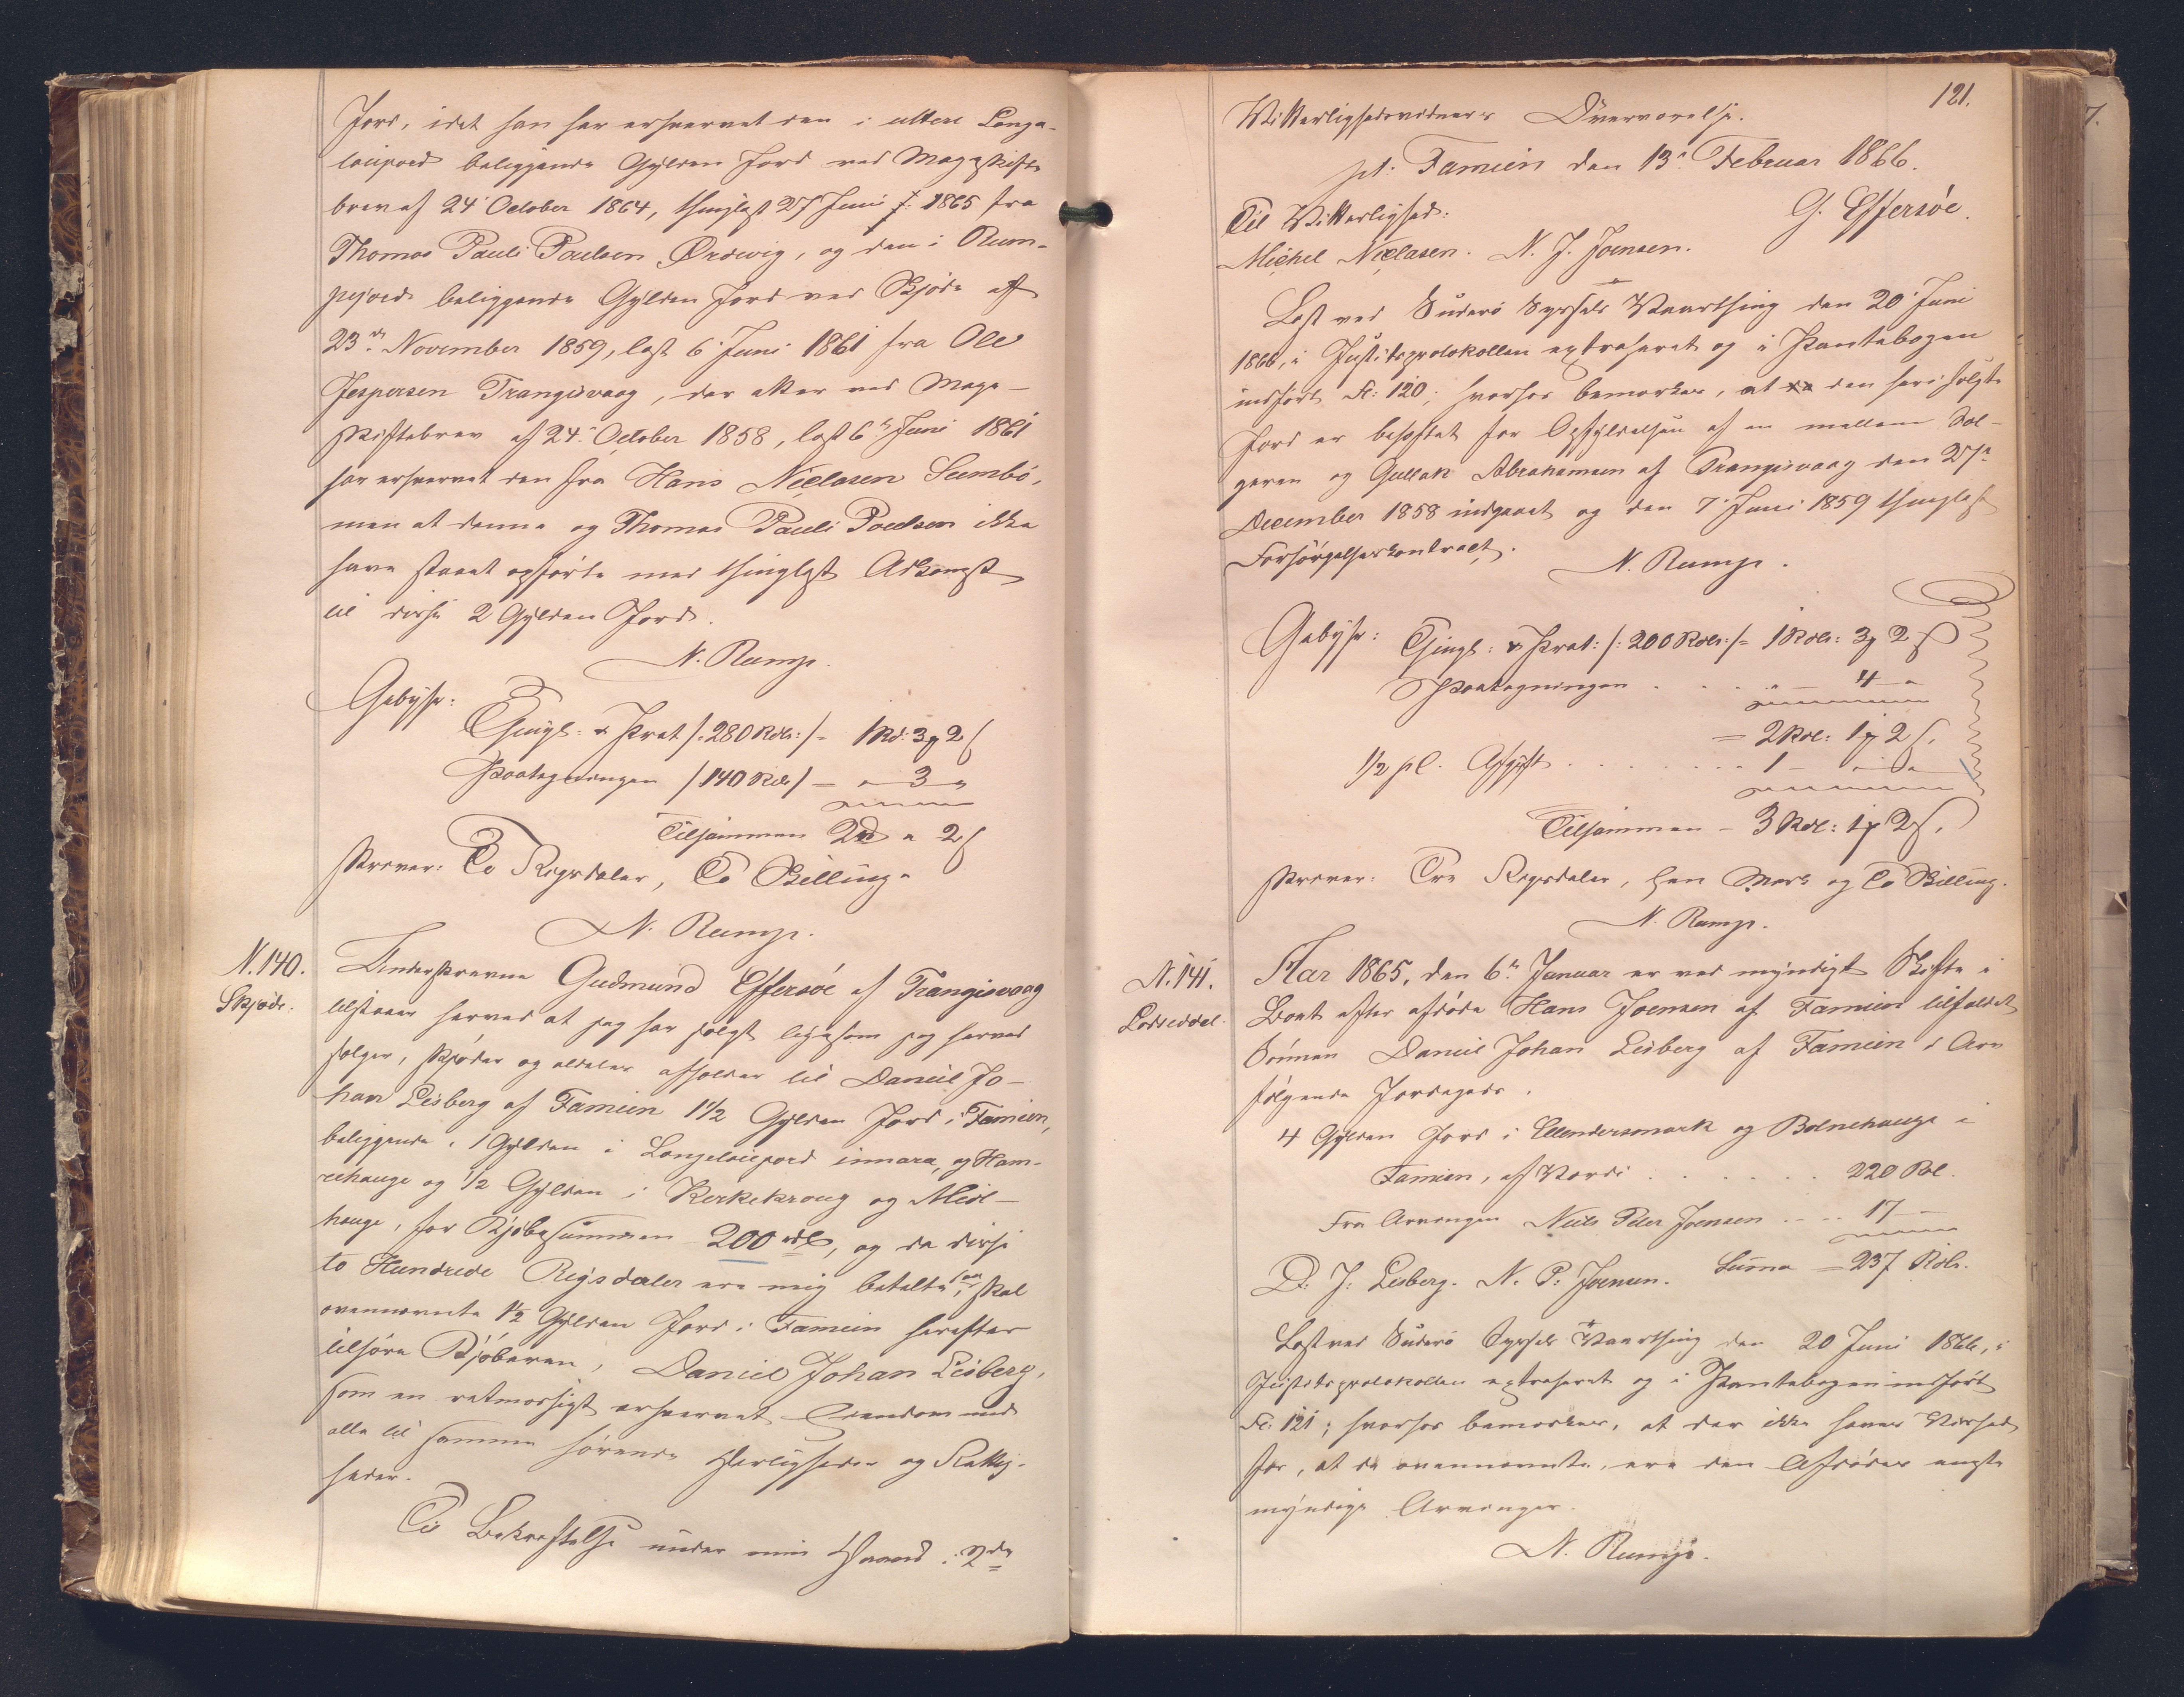 Jord, idet han har erhvervet den i uttere Longa-
loijord beliggende Gylden Jord ved Mageskifte
brev af 24 October 1864, thinglæst 27 Juni f: 1865 fra
Thomas Pauli Poulsen Ørdevig, og den i Rum-
pejord beliggende Gylden Jord ved Skjøde af
23de November 1859, læst 6 Juni 1861 fra Ole
Jespersen Trangisvaag, der atter ved Mage-
skiftebrev af 24 October 1858, læst 6te Juni 1861
har erhvervet den fra Hans Niclasen Sumbø,
men at denne og Thomas Pauli Poulsen ikke
have staaet opførte med thinglæst Adkomst
til disse 2 Gylden Jord.
N. Rump.
Gebyhr:
Thingl: & Prot /: 280 Rdlr: /= 1Rd: 3 ꝟ 2 ß
Paategningen /140 Rdl/ — " 3 "
Tilsammen 2 Rd " 2 ß
skriver: To Rigsdaler, To Skilling.
N. Rump.
N. 140.
Skjøde.
Underskrevne Gudmund Effersøe af Trangisvaag
tilstaaer herved at jeg har solgt ligesom jeg herved
sælger, skjøder og aldeles afholder til Daniel Jo-
han Leisberg af Famien 1 1/2 Gylden Jord i Famien,
beliggende: 1 Gylden i Longeloiejord innara, og Ham-
rehauge og 1/2 Gylden i Kerkekroug og Midl-
hauge, for Kjøbesummen 200 rdl, og da disse
to Hundrede Rigsdaler ere mig betalte, saa skal
ovennævnte 1 1/2 Gylden Jord i Famien herefter
tilhøre Kjøberen, Daniel Johan Leisberg,
som en retmæssigt erhvervet Eiendom med
alle til samme hørende Herligheder og Rettig-
heder.
Til Bekræftelse under min Haand i 2de
121.
Vitterlighedsvidners Overværelse.
pt: Famien den 13de Februar 1866.
Til Vitterlighed:
G. Effersøe.
Michel Niclasen. N. J. Joensen.
Læst ved Suderø Syssels Vaarthing den 20 Juni
1866, i Justitsprotokollen extraheret og i Pantebogen
indført Fl: 120; hvorhos bemærkes, at den heri solgte
Jord er behæftet for Opfyldelsen af en mellem Sæl-
geren og Gullak Abrahamsen af Trangisvaag den 27de
December 1858 indgaaet og den 7 Juni 1859 thinglæst
Forsørgelsescontract.
N. Rump.
Gebyhr: Thingl: & Prot: /: 200 Rdlr: /= 1 Rdlr: 3 ꝟ 2 ß
Paategningen . . . " — 4 — "
= 2 Rdl: 1 ꝟ 2 ß.
1/2 pCt. Afgift . . . . . . . . . 1 — " "
Tilsammen — 3 Rdl: 1 ꝟ 2 ß.
skriver: Tre Rigsdaler, Een Mark og To Skilling.
N. Rump.
N. 141.
Lodseddel.
Aar 1865, den 6te Januar er ved myndigt Skifte i
Boet efter afdøde Hans Joensen af Famien tilfaldet
Sønnen Daniel Johan Leisberg af Famien i Arv
følgende Jordegods.
4 Gylden Jord i Ellendersmark og Bolnehauge i
Famien, af Værdi . . . . . . 220 Rd.
Fra Arvingen Niels Peter Joensen . . . . 17 —
D: J: Leisberg. N. P: Joensen. Summa = 237 Rdlr.
Læst ved Suderø Syssels Vaarthing den 20 Juni 1866, i
Justitsprotokollen extraheret og i Pantebogen indført
Fl: 121; hvorhos bemærkes, at der ikke haves Vished
for, at de ovennævnte, ere den Afdødes eneste
myndige Arvinger.
N. Rump.